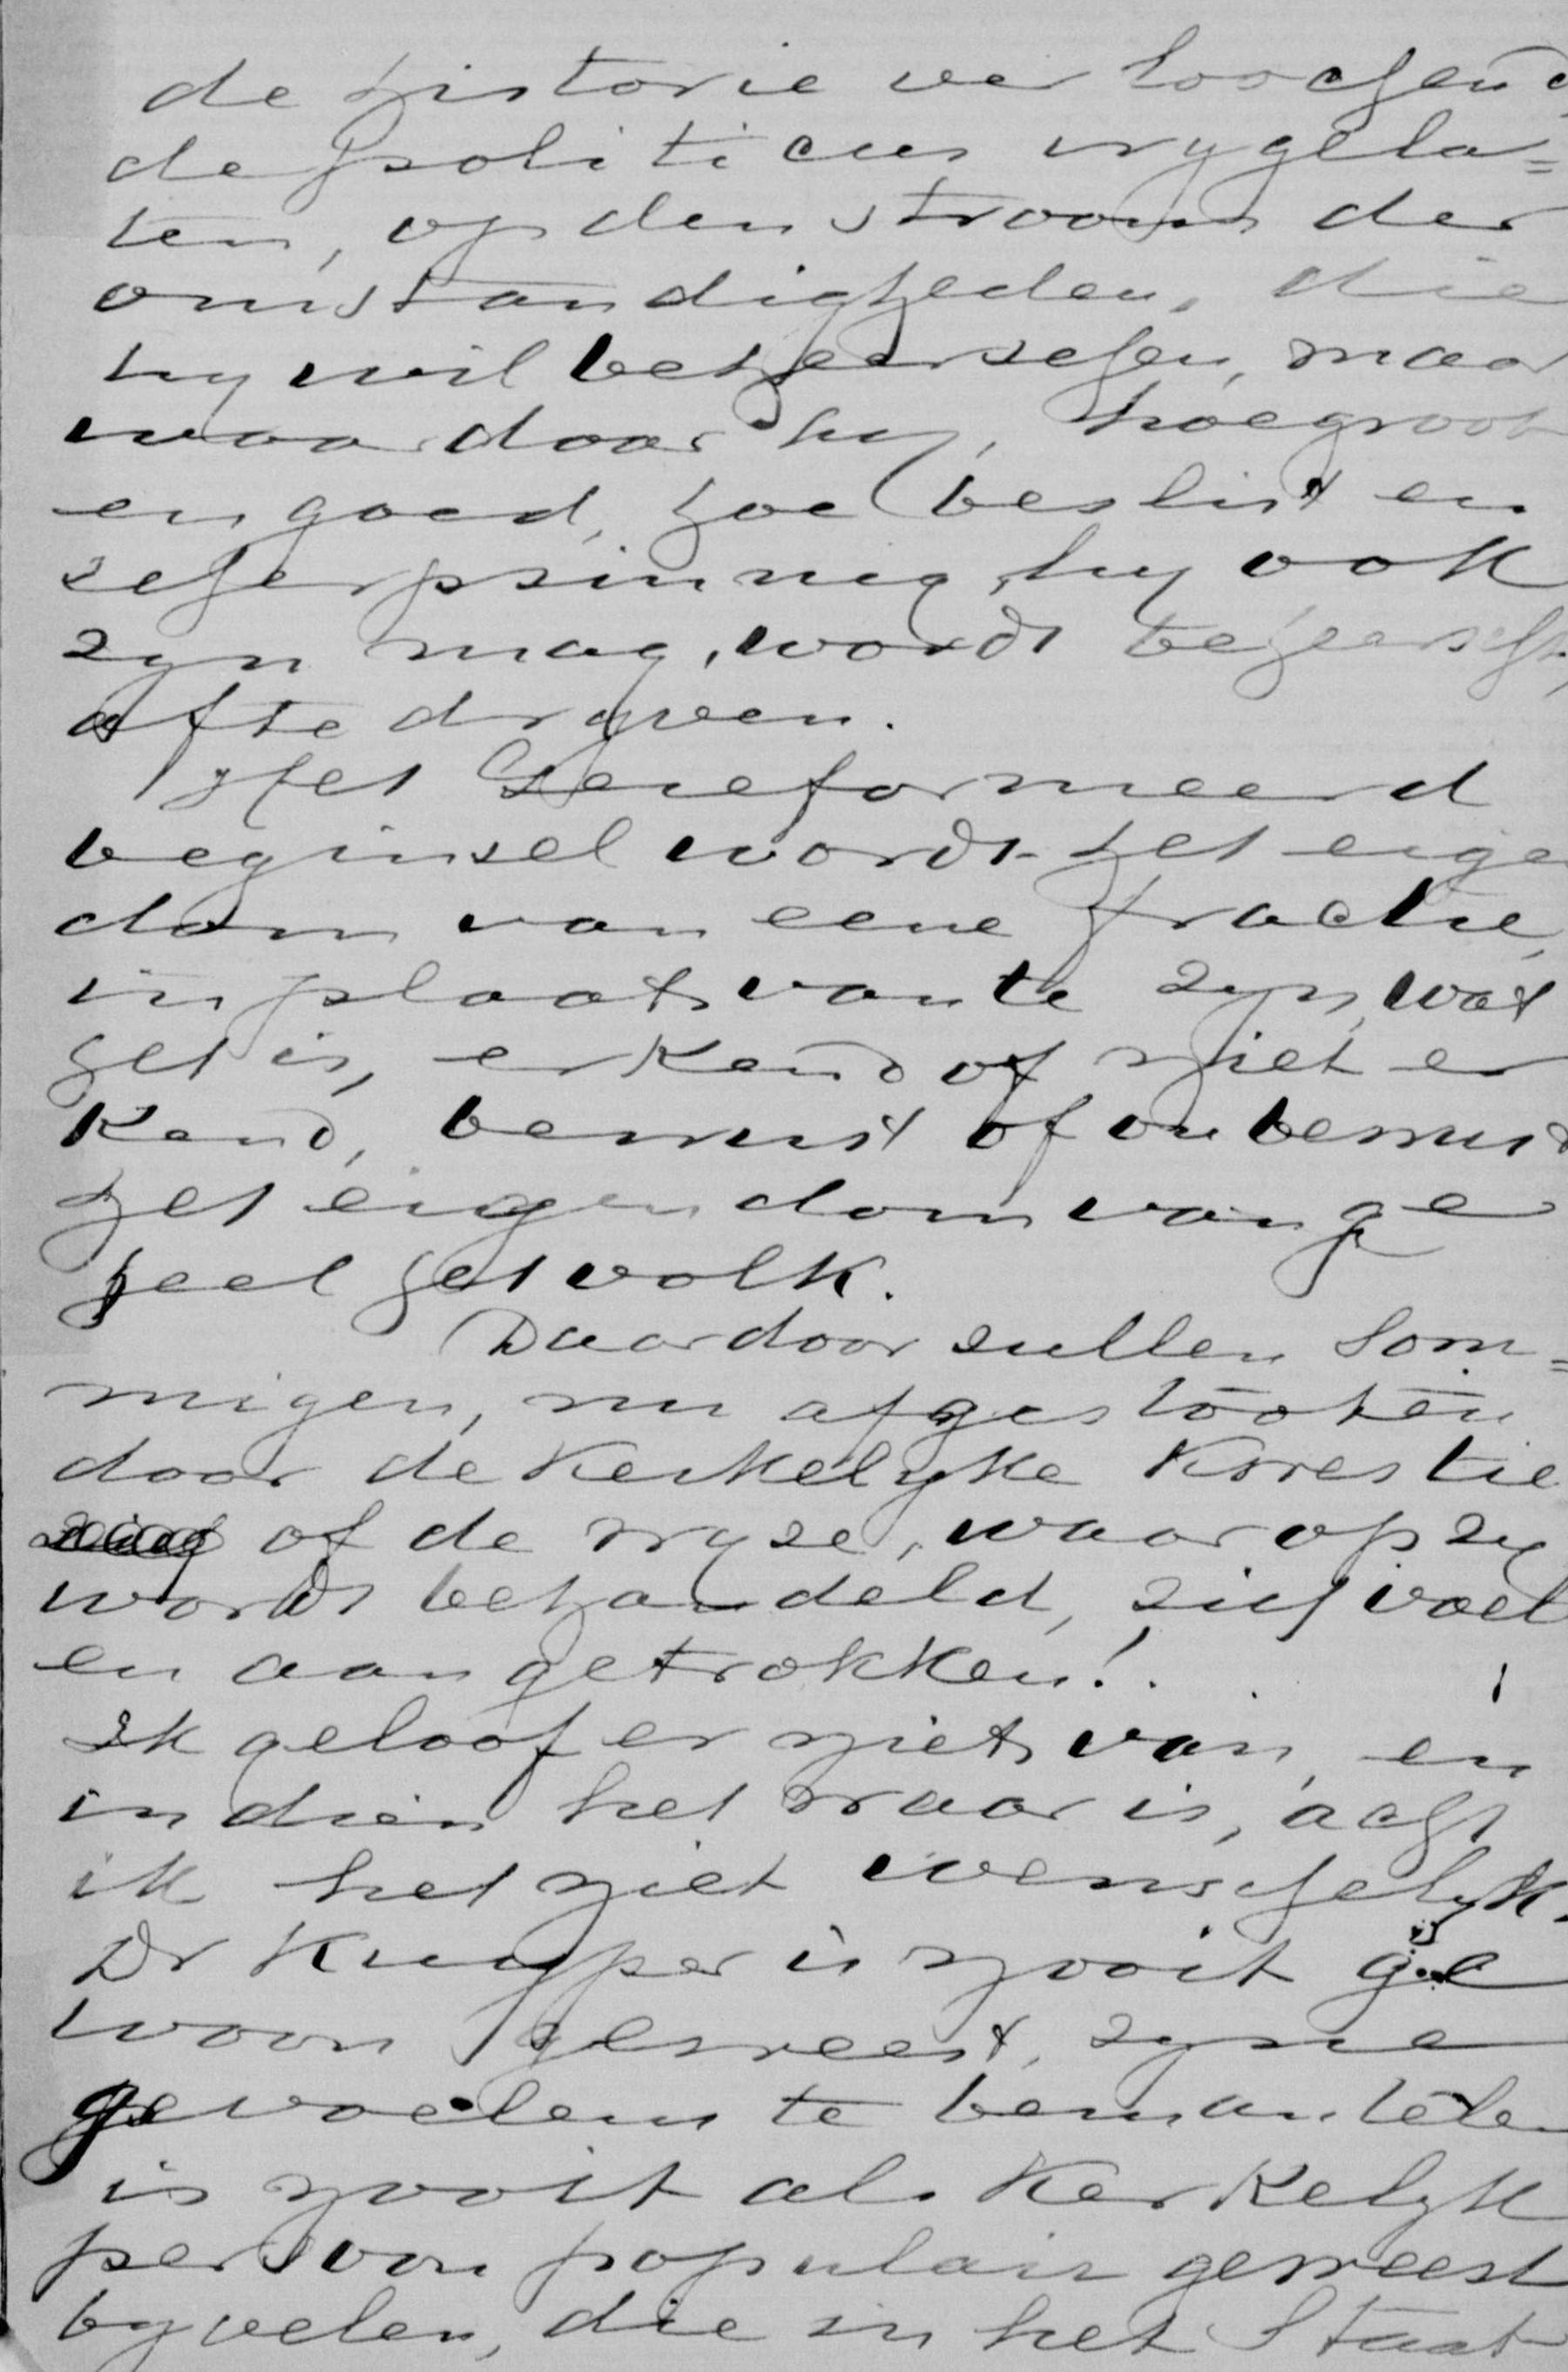 de historie verloochend,
de politicus vrygela=
ten, op den stroom der
omstandigheden, die
hy wil beheerschen, maar
waardoor hy, hoe groot
en goed, hoe beslist en
scherpsinnig, hy ook
zyn mag, wordt beheerscht,
af te dryven.
Het Gereformeerd
beginsel wordt het eigen
dom van eene fractie,
in plaats van te zyn, wat
het is, erkend of niet er
kend, bewust of onbewust
het eigendom van ge
heel het volk.
Daardoor zullen som=
migen, nu afgestooten
door de Kerkelyke Kwestie
of de wyze, waarop zy
wordt behandeld, zich voel
en aangetrokken!
Ik geloof er niets van, en
indien het waar is, acht
ik het niet wenschelyk.
Dr Kuyper is nooit ge
woon geweest, zyne
gevoelens te bemantelen
is nooit als Kerkelyk
persoon populair geweest
by velen, die in het Staat